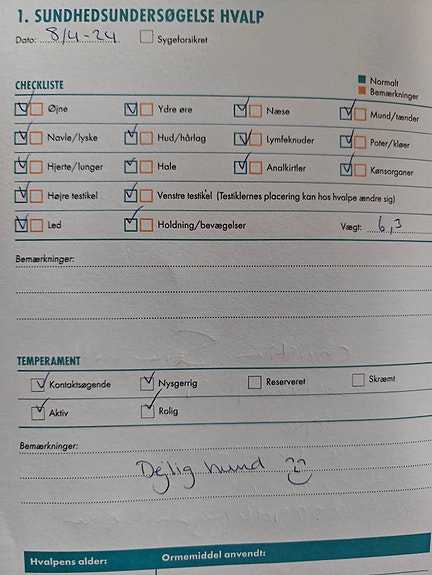 1. SUNDHEDSUNDERSØGELSE HVALP
Dato: 8/4-24 Sygeforsikret
CHECKLISTE
Normalt
Bemærkninger
Øjne Ydre øre Næse Mund/tænder
Navle/lyske Hud/hårlag Lymfeknuder Poter/kløer
Hjerte/lunger Hale Analkirtler Kønsorganer
Højre testikel Venstre testikel (Testiklernes placering kan hos hvalpe ændre sig)
Led Holdning/bevægelser Vægt: 6,3
Bemærkninger:
TEMPERAMENT
Kontaktsøgende Nysgerrig Reserveret Skræmt
Aktiv Rolig
Bemærkninger:
Dejlig hund
Hvalpens alder: Ormemiddel anvendt: